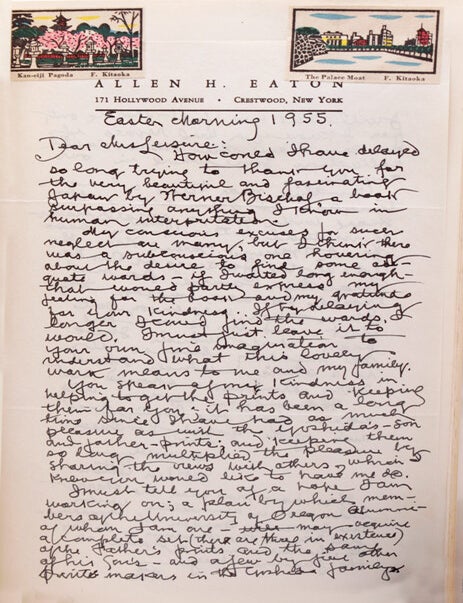 Kan-eiji Pagoda F. Kitaoka
The Palace Moat F. Kitaoka
ALLEN H. EATON
171 HOLLYWOOD AVENUE • CRESTWOOD, NEW YORK
Easter Morning 1955.
Dear Mrs Leisure:
How could I have delayed
so long trying to thank you for
the very beautiful and fascinating
Japan by Werner Bischof, a book
surpassing anything I know in
human interpretation.
My conscious excuses for such
neglect are many, but I think there
was a subconscious one hovering
about the desire to find some ade-
quate words - if I waited long enough -
that would partly express my
feeling for the book and my gratitude
for your kindness. If by delaying
longer I could find the words, I
would. I must just leave it to
your own fine imagination to
understand what this lovely
work means to me and my family.
You speak of my kindness in
helping to get the prints and keeping
them for you: it has been a long
time since I have had as much
pleasure as with the Yoshida's - son
and father - prints: and keeping them
so long multiplied the pleasure by
sharing the views with others, which I
knew you would like to have me do.
I must tell you of a hope I am
working on; a plan by which mem-
bers of the University of Oregon alumni -
of whom I am one - may acquire
a complete set (there are three in existence)
of the Father's prints and the same
of his Son's - and a few by five other
print makers in the Yoshida family